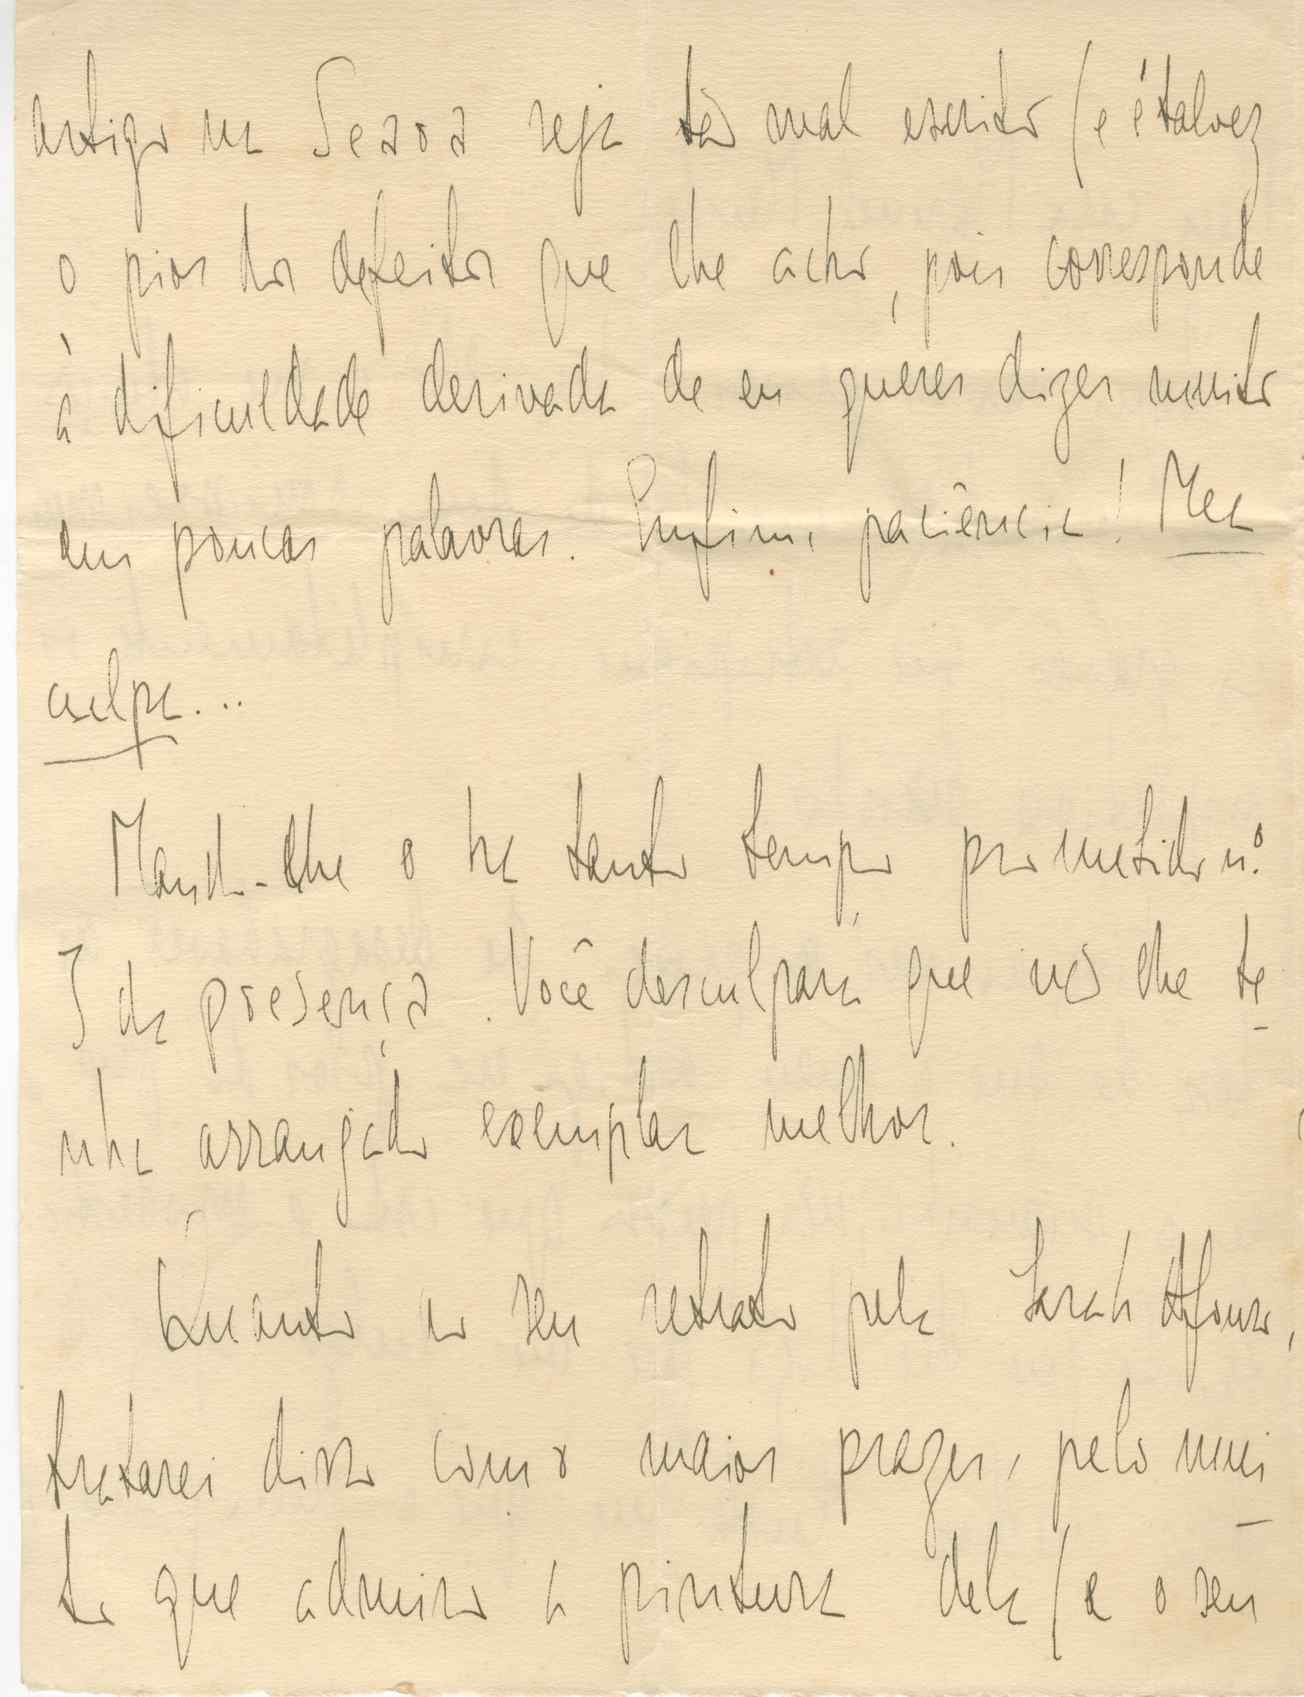 artigo na Seara seja tão mal escrito (e é talvez
o pior dos defeitos que lhe acho, pois corresponde
à dificuldade derivada de eu querer dizer muito
em poucas palavras. Enfim, paciência! Mea
culpa...
Mando-lhe o ha tanto tempo prometido n.º
3 da presença. Você desculpará que não lhe te-
nha arranjado exemplar melhor.
Quanto ao seu retrato pela Sarah Afonso,
tratarei disso com o maior prazer, pelo mui-
to que admiro a pintura dela (e o seu